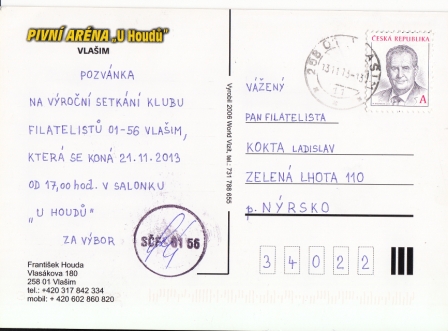 PIVNÍ ARÉNA „U Houdů"
VLAŠIM
POZVÁNKA
NA VÝROČNÍ SETKÁNÍ KLUBU
FILATELISTŮ 01-56 VLAŠIM,
KTERÁ SE KONÁ 21.11.2013
OD 17,00 hod. V SALONKU
„U HOUDŮ"
ZA VÝBOR
SČF 01 56
František Houda
Vlasákova 180
258 01 Vlašim
tel.: +420 317 842 334
mobil: + 420 602 860 820
Vyrobil 2006 World Vizit, tel.: 731 788 655
258 01 VLAŠIM
ČESKÁ REPUBLIKA
A
VÁŽENÝ
PAN FILATELISTA
KOKTA LADISLAV
ZELENÁ LHOTA 110
p. NÝRSKO
3 4 0 2 2